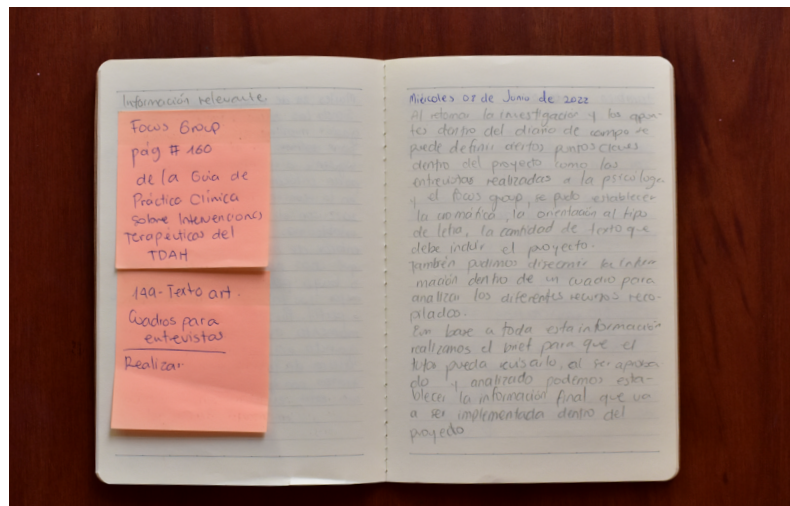 Información relevante.
Focus Group
pág # 160
de la Guia de
Práctica Clínica
sobre Intervenciones
Terapéuticas del
TDAH
149-Texto art.
Cuadros para
entrevistas
Realizar
Miércoles 08 de Junio de 2022
Al retomar la investigación y los apun-
tes dentro del diario de campo se
puede definir ciertos puntos claves
dentro del proyecto como las
entrevistas realizadas a la psicologa
y el focus group, se pudo establecer
la cromática, la orientación al tipo
de letra, la cantidad de texto que
debe incluir el proyecto.
También pudimos discernir la infor
mación dentro de un cuadro para
analizar los diferentes recursos reco-
pilados.
Con base a toda esta información
realizamos el brief para que el
tutor pueda revisarlo, al ser aproba
do y analizado podemos esta-
blecer la información final que va
a ser implementada dentro del
proyecto